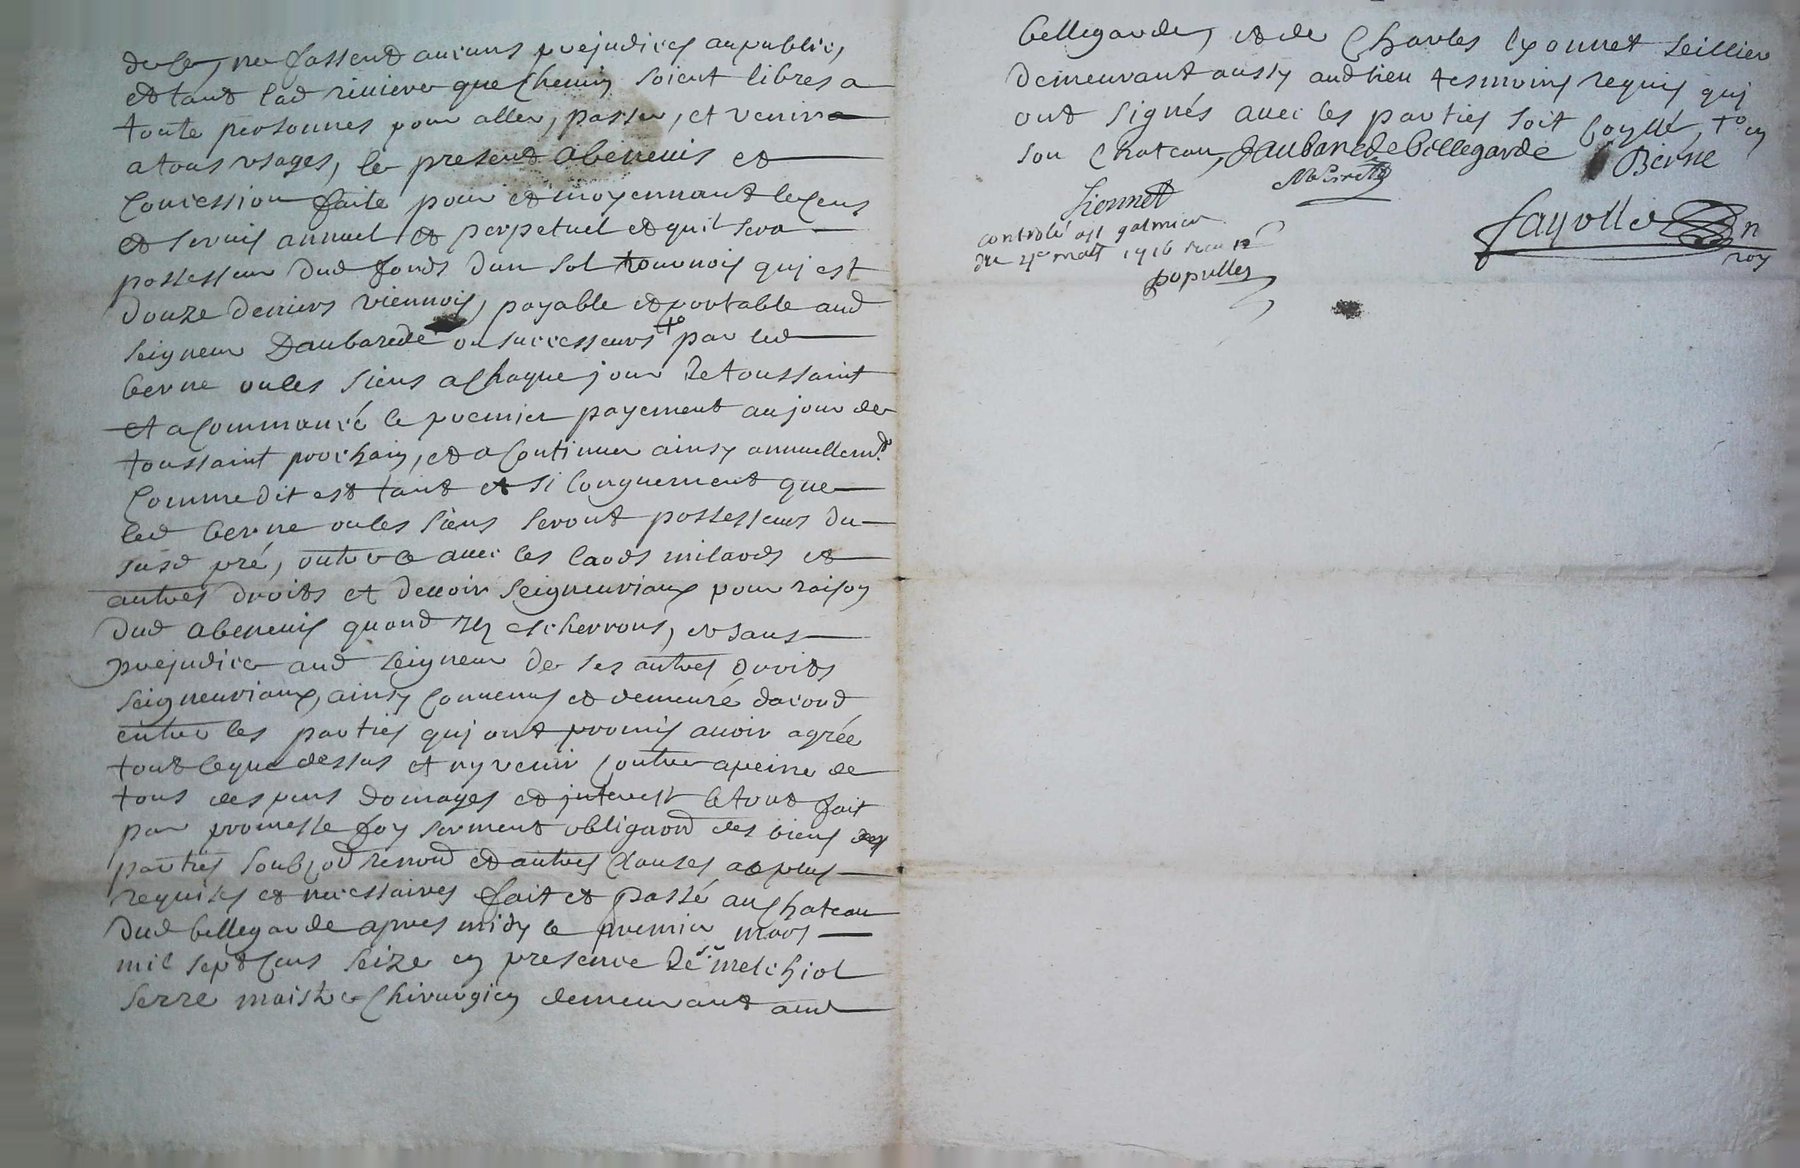 de ce, ne fassent aucuns prejudices au public,
et tant lad riviere que chemin soient libres a
toute personnes pour aller, passer, et venir a
a tous usages, le present abenevis et
concession faite pour et moyennant le cens
et servis annuel et perpetuel et quil sera
possesseur dud fonds dun sol tournois qui est
douze deniers viennois, payable et portable aud
seigneur Daubarede ou successeurs par led
berne ou les siens a chaque jour de toussaint
et a commancé le premier payement au jour de
toussaint prochain, et a continuer ainsy annuellemt
comme dit est tant et si longuement que
led berne ou les siens seront possesseurs du
susd pré, outre ce avec les laods milaods et
autres droits et devoir seigneuriaux pour raison
dud abenevis quand ils escherront, et sans
prejudice aud seigneur de ses autres droits
seigneuriaux, ainsy convenus et demeuré dacord
entre les parties qui ont promis avoir agréé
tout ce que dessus et ny venir contre a peine de
tous despens domages et interest le tout fait
par promesse foy serment obligaon des biens des
parties soub renon et autres clauses a plus
requises et necessaires fait et passé au chateau
dud bellegarde apres midy le premier mars
mil sept cens seize en presence de sr melchiol
serre maistre chirurgien demeurant aud
bellegarde, et de Charles lyonnet seillier
demeurant aussy aud lieu tesmoins requis qui
ont signés avec les parties soit
son chateau, Daubarede bellegarde
Berne
Lionnet
Fayolle
controlé a st galmier
du mars 1716 recu 12
roy